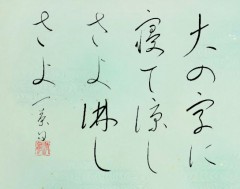 大の字に
寝て涼し
さよ淋し
さよ一茶